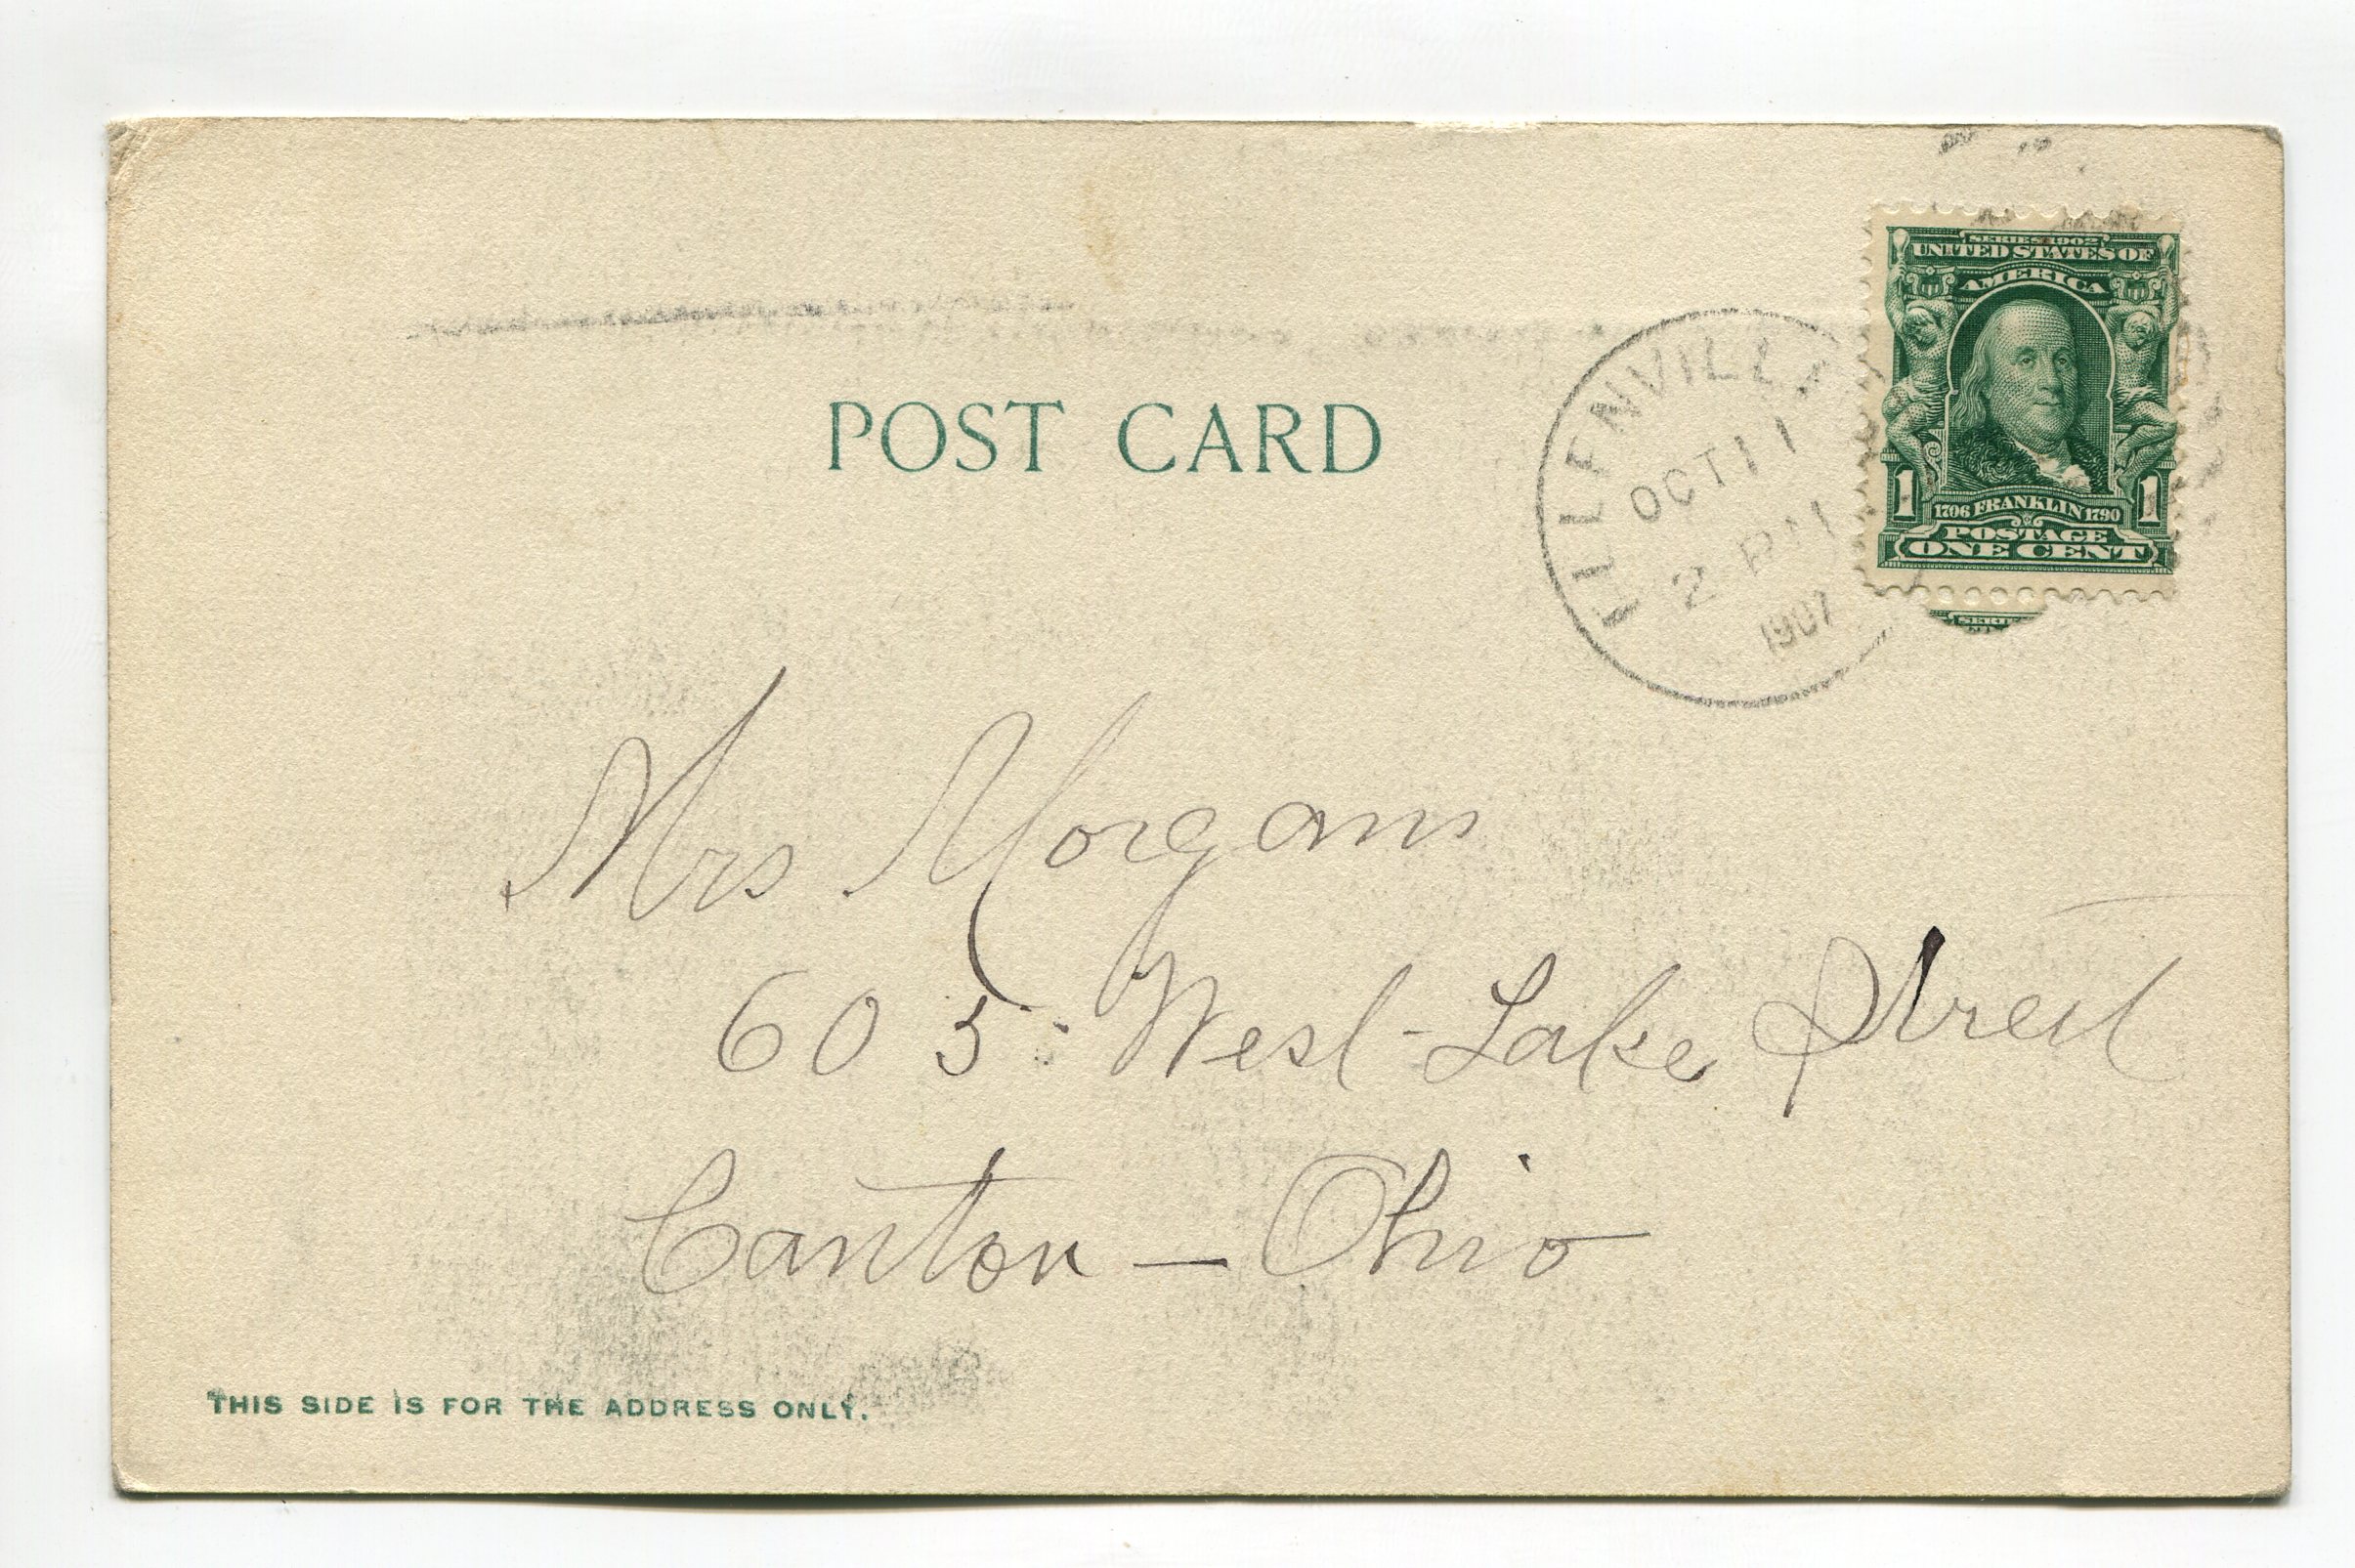 POST CARD
ELLENVILLE
OCT 11
2 PM
1907
SERIES 1902
UNITED STATES OF
AMERICA
1 1706 FRANKLIN 1790 1
POSTAGE
ONE CENT
SERIE
Mrs Morgans
605 West Lake Street
Canton — Ohio
THIS SIDE IS FOR THE ADDRESS ONLY.